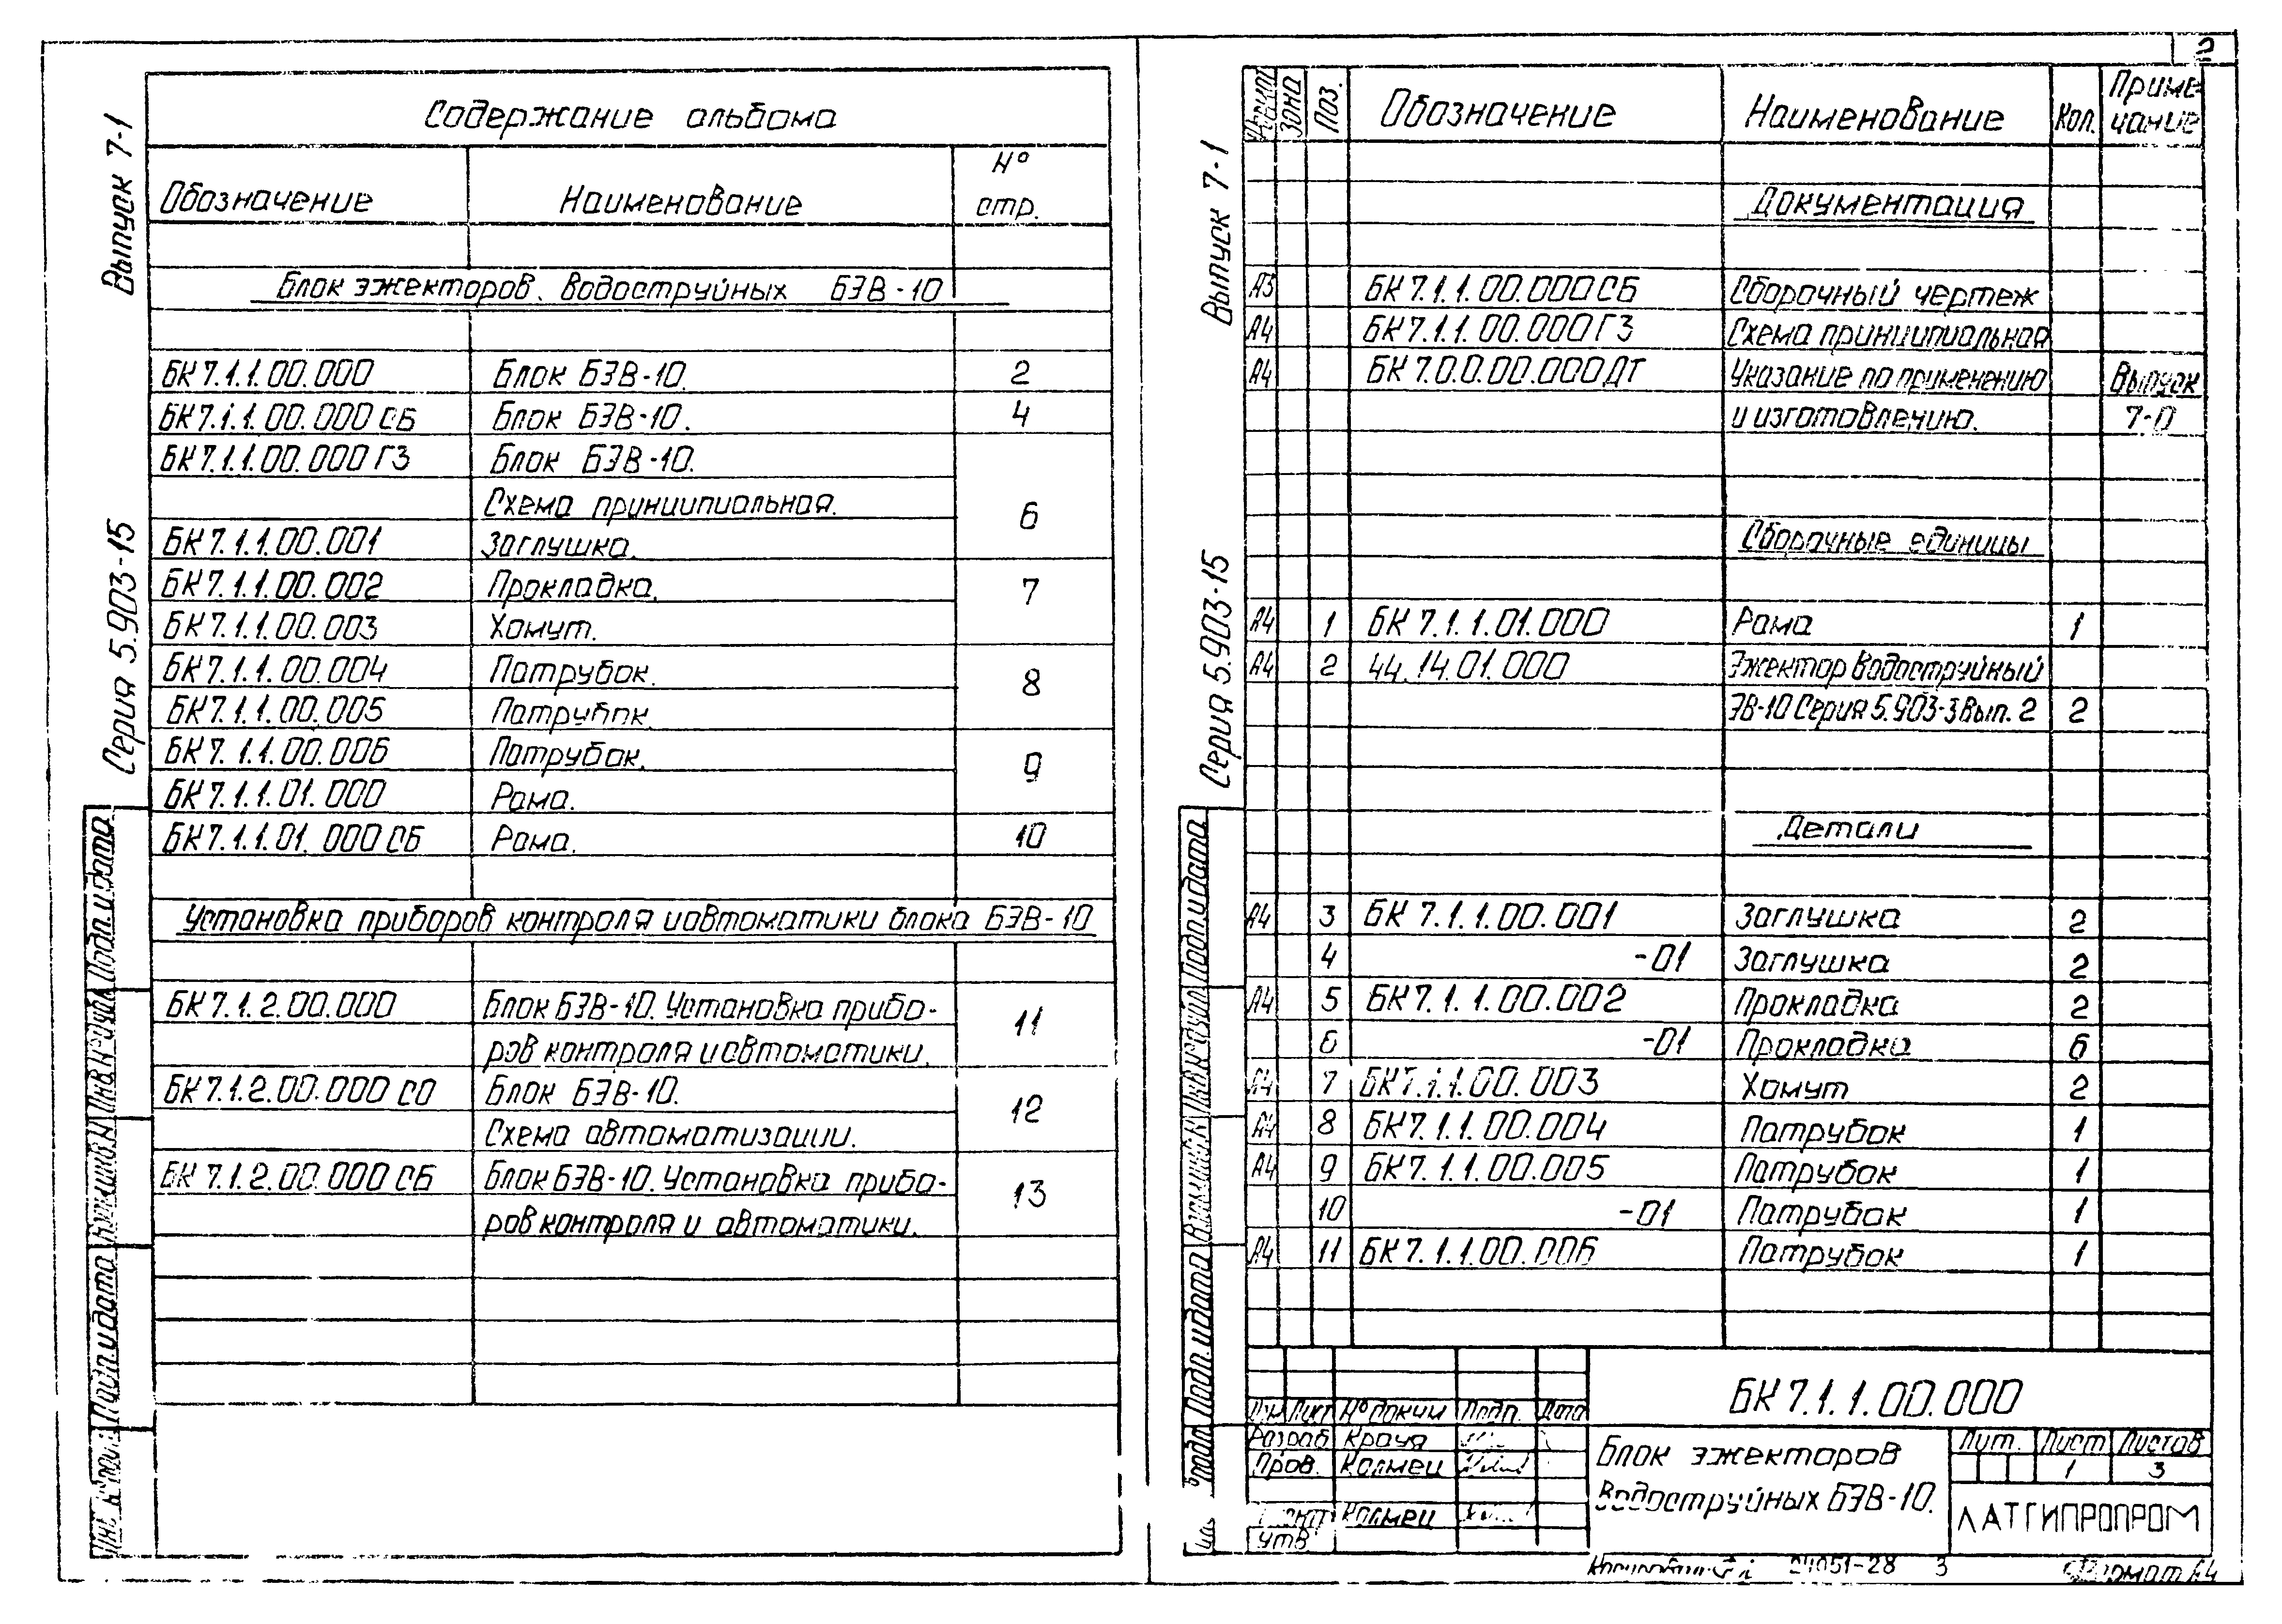 2
Выпуск 7-1
Серия 5.903-15
Содержание альбома
Обозначение Наименование № стр.
Блок эжекторов водоструйных БЭВ-10
БК 7.1.1.00.000 Блок БЭВ-10. 2
БК 7.1.1.00.000 СБ Блок БЭВ-10. 4
БК 7.1.1.00.000 ГЗ Блок БЭВ-10.
Схема принципиальная. 6
БК 7.1.1.00.001 Заглушка.
БК 7.1.1.00.002 Прокладка. 7
БК 7.1.1.00.003 Хомут.
БК 7.1.1.00.004 Патрубок. 8
БК 7.1.1.00.005 Патрубок.
БК 7.1.1.00.006 Патрубок. 9
БК 7.1.1.01.000 Рама.
БК 7.1.1.01.000 СБ Рама. 10
Установка приборов контроля и автоматики блока БЭВ-10
БК 7.1.2.00.000 Блок БЭВ-10. Установка прибо-
ров контроля и автоматики. 11
БК 7.1.2.00.000 СО Блок БЭВ-10.
Схема автоматизации. 12
БК 7.1.2.00.000 СБ Блок БЭВ-10. Установка прибо-
ров контроля и автоматики. 13
Подп. и дата
Подп. и дата
Выпуск 7-1
Серия 5.903-15
Формат Зона Поз. Обозначение Наименование Кол. Приме-
чание
Документация
А3 БК 7.1.1.00.000 СБ Сборочный чертеж
А4 БК 7.1.1.00.000 ГЗ Схема принципиальная
А4 БК 7.0.0.00.000 ДТ Указание по применению Выпуск
и изготовлению. 7-0
Сборочные единицы
А4 1 БК 7.1.1.01.000 Рама 1
А4 2 44.14.01.000 Эжектор водоструйный
ЭВ-10 Серия 5.903-3 Вып. 2 2
Детали
А4 3 БК 7.1.1.00.001 Заглушка 2
4 -01 Заглушка 2
А4 5 БК 7.1.1.00.002 Прокладка 2
6 -01 Прокладка 6
А4 7 БК 7.1.1.00.003 Хомут 2
А4 8 БК 7.1.1.00.004 Патрубок 1
А4 9 БК 7.1.1.00.005 Патрубок 1
10 -01 Патрубок 1
А4 11 БК 7.1.1.00.006 Патрубок 1
Подп. и дата
Подп. и дата
БК 7.1.1.00.000
Изм Лист № докум Подп. Дата
Разраб Крауя
Пров. Колмец
Колмец
Утв
Блок эжекторов
водоструйных БЭВ-10.
Лит. Лист Листов
1 3
ЛАТГИПРОПРОМ
24051-28 3
Формат А4